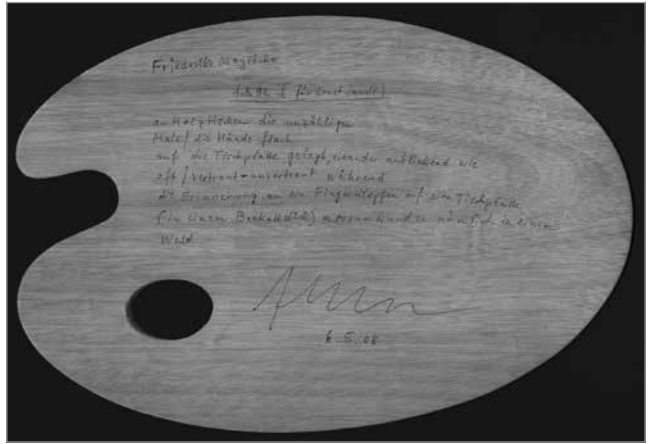 Friederike Mayröcker
(für Ernst Jandl)
an Holztischen die unzähligen
Male / die Hände flach
auf die Tischplatte gelegt, einander anblickend wie
oft / vertraut-unvertraut während
die Erinnerung an ein Fingerklopfen auf eine Tischplatte
(in einem
in einem
Wald
6.5.08